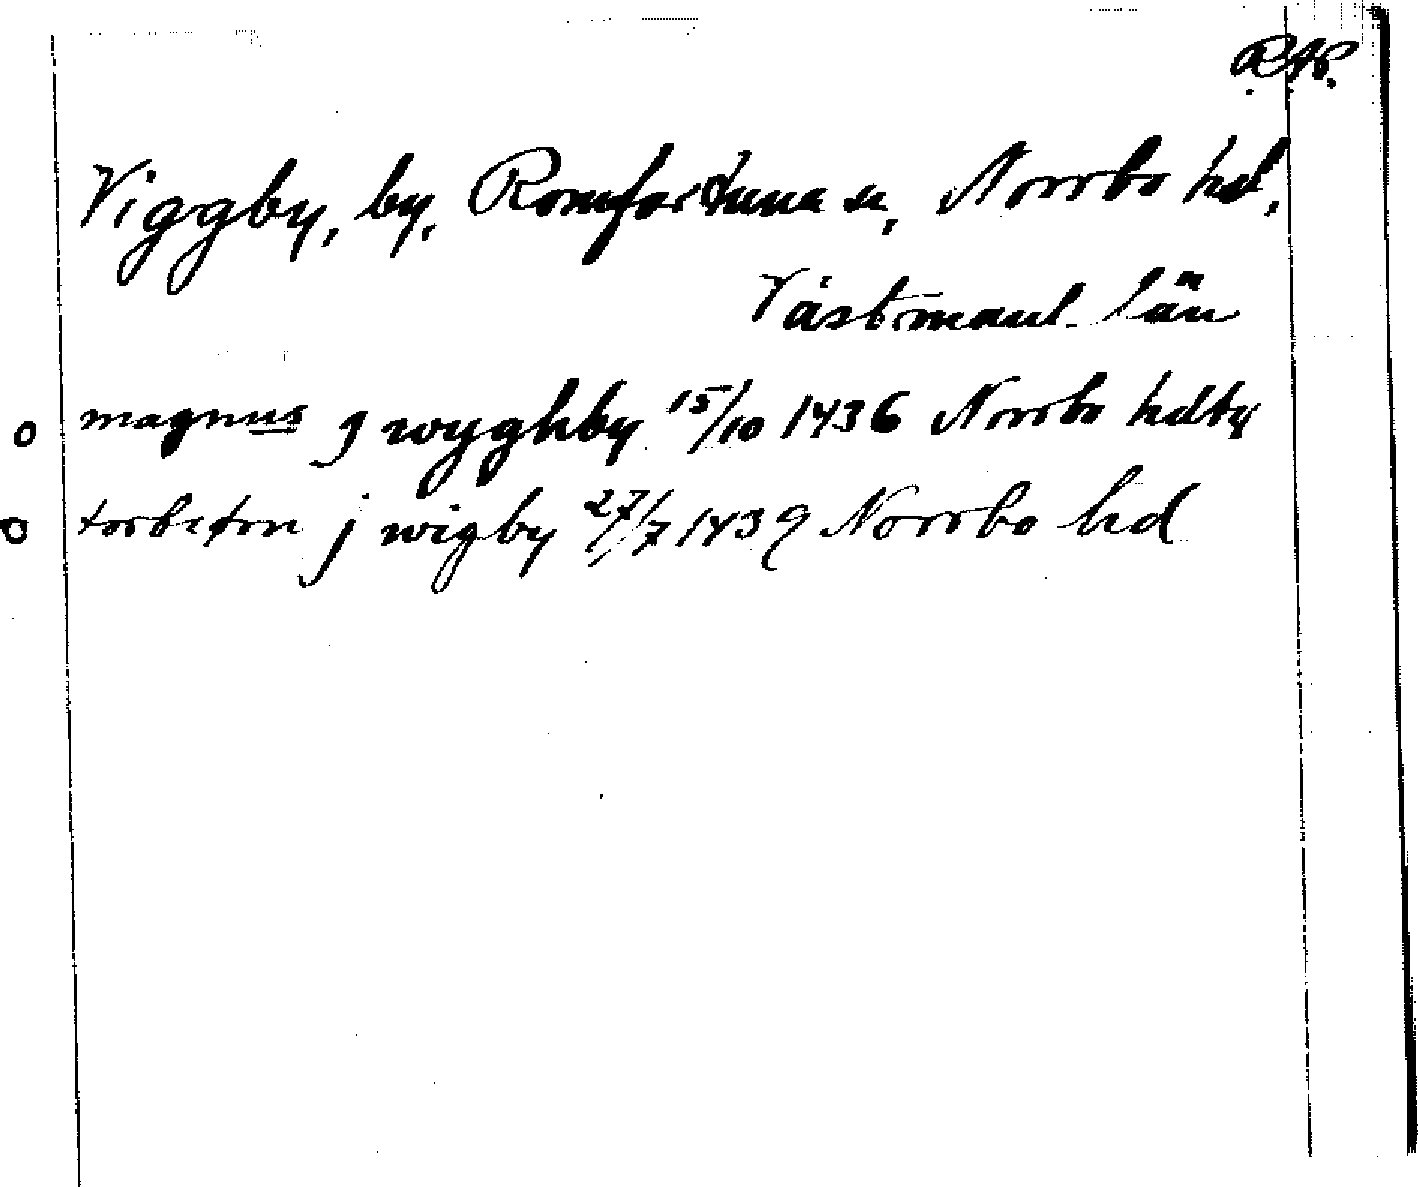 Viggby, by, Romfartuna sn, Norrbo hd,
Västmanl. län
magnus j wyghby 15/10 1436 Norrbo hdtg
torbiørn j wigby 27/7 1439 Norrbo hd